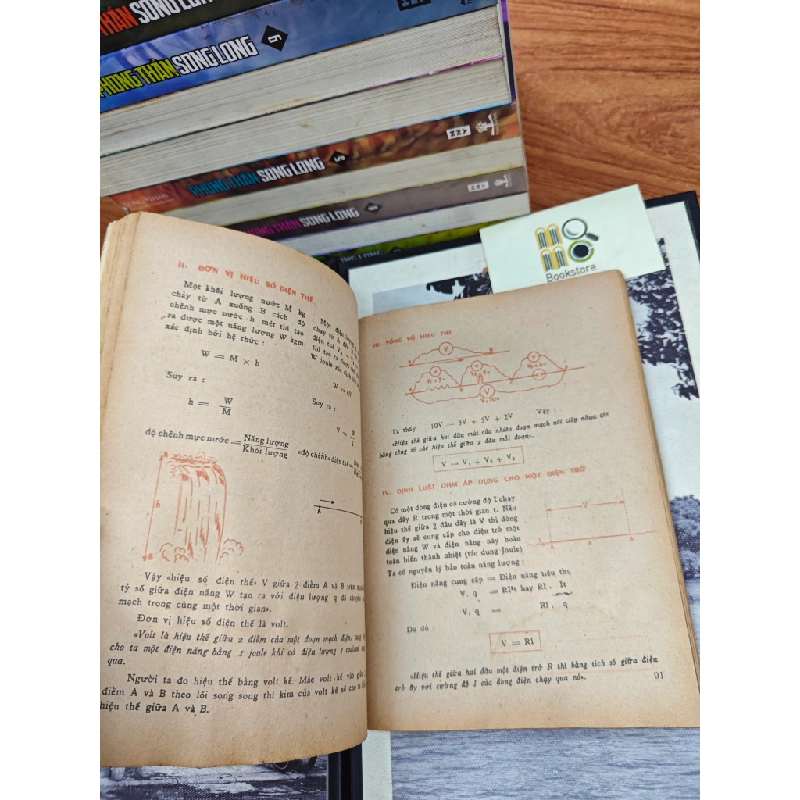 THẦN SONG LONG
PHONG THẦN SONG LONG
6
PHONG THẦN SONG LONG
5
PHONG THẦN SONG LONG
Bookstore
II. ĐƠN VỊ HIỆU SỐ ĐIỆN THẾ
Một khối lượng nước M kg
chảy từ A xuống B cách độ
chênh mực nước h mét thì tạo
ra được một năng lượng W kgm
xác định bởi hệ thức :
W = M × h
Suy ra :
h = W/M
độ chênh mực nước = Năng lượng/Khối lượng
Suy ra :
«độ chênh» điện thế
Vậy «hiệu số điện thế» V giữa 2 điểm A và B
tỷ số giữa điện năng W tạo ra với điện lượng q di chuyển
mạch trong cùng một thời gian».
Đơn vị hiệu số điện thế là volt.
«Volt là hiệu thế giữa 2 điểm của một đoạn mạch điện,
cho ta một điện năng bằng 1 joule khi có điện lượng 1 coulomb
qua.
Người ta đo hiệu thế bằng volt kế. Mắc volt kế vào giữa
điểm A và B theo lối song song thì kim của volt kế sẽ cho ta
hiệu thế giữa A và B.
III. TỔNG SỐ HIỆU THẾ
Ta thấy 10V = 3V + 5V + 2V Vậy :
«Hiệu thế giữa hai đầu mút của nhiều đoạn mạch nối tiếp nhau thì
bằng tổng số các hiệu thế giữa 2 đầu mỗi đoạn».
V = V₁ + V₂ + V₃
IV. ĐỊNH LUẬT OHM ÁP DỤNG CHO MỘT ĐIỆN TRỞ
Có một dòng điện có cường độ I chạy
qua dây R trong một thời gian t. Nếu
hiệu thế giữa 2 đầu dây là V thì dòng
điện ấy sẽ cung cấp cho điện trở một
điện năng W và điện năng này hoàn
toàn biến thành nhiệt (tác dụng Joule)
Ta có nguyên lý bảo toàn năng lượng :
Điện năng cung cấp = Điện năng tiêu thụ
V. q = RI²t hay RI . It
V. q = RI . q
Do đó :
V = RI
«Hiệu thế giữa hai đầu một điện trở R thì bằng tích số giữa điện
trở ấy với cường độ I của dòng điện chạy qua nó».
91